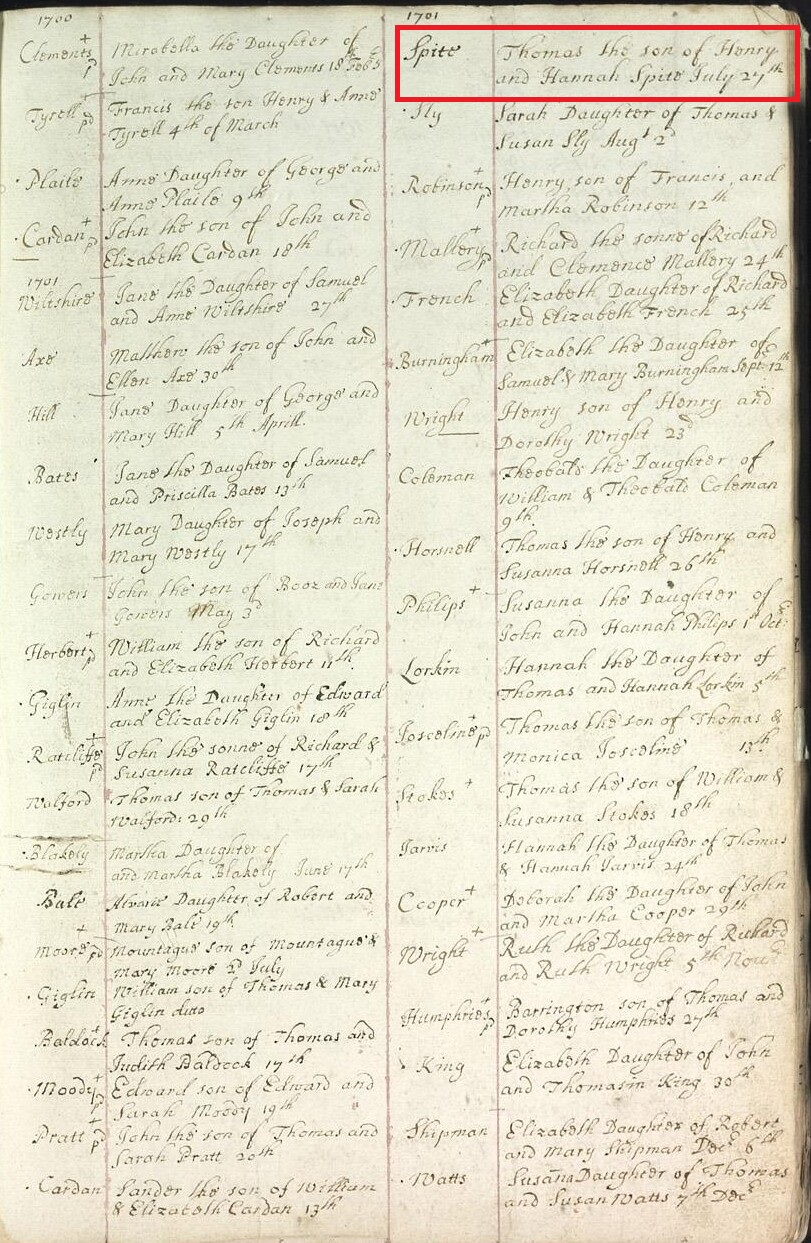 1700
Clements Mirabella the Daughter of
p John and Mary Clements 18th Feb
Tyrell Francis the son Henry & Anne
pd Tyrell 4th of March
Plaile Anne Daughter of George and
Anne Plaile 9th
Cardan John the son of John and
p Elizabeth Cardan 18th
1701
Wiltshire Jane the Daughter of Samuel
and Anne Wiltshire 27th
Axe Matthew the son of John and
Ellen Axe 30th
Hill Jane Daughter of George and
Mary Hill 5th Aprill.
Bates Jane the Daughter of Samuel
and Priscilla Bates 13th
Westly Mary Daughter of Joseph and
Mary Westly 17th
Gowers John the son of Booz and Jane
Gowers May 3d
Herbert William the son of Richard
p and Elizabeth Herbert 11th
Giglin Anne the Daughter of Edward
and Elizabeth Giglin 18th
Ratcliffe John the sonne of Richard &
p Susanna Ratcliffe 17th
Walford Thomas son of Thomas & Sarah
Walford: 29th
Blakely Martha Daughter of
and Martha Blakely June 17th
Bale Daughter of Robert and
Mary Bale 19th
Moore pd Mountague son of Mountague &
Mary Moore 2d July
Giglin William son of Thomas & Mary
Giglin ditto
Baldock Thomas son of Thomas and
Judith Baldock 17th
Moody Edward son of Edward and
p Sarah Moody 19th
Pratt John the son of Thomas and
p Sarah Pratt 20th
Cardan Sander the son of William
& Elizabeth Cardan 13th
1701
Spite Thomas the son of Henry
and Hannah Spite July 27th
Sly Sarah Daughter of Thomas &
Susan Sly Augt 2d
Robinson Henry son of Francis and
p Martha Robinson 12th
Mallery Richard the sonne of Richard
p and Clemence Mallery 24th
French Elizabeth Daughter of Richard
and Elizabeth French 25th
Burningham Elizabeth the Daughter of
Samuel & Mary Burningham Sept: 12th
Wright Henry son of Henry and
Dorothy Wright 23d
Coleman Theobals the Daughter of
William & Theobals Coleman
9th
Horsnell Thomas the son of Henry and
Susanna Horsnell 26th
Philips Susanna the Daughter of
John and Hannah Philips 1st Oct:
Lorkin Hannah the Daughter of
Thomas and Hannah Lorkin 5th
Josceline p Thomas the son of Thomas &
Monica Josceline 13th
Stokes Thomas the son of William &
Susanna Stokes 18th
Jarvis Hannah the Daughter of Thomas
& Hannah Jarvis 24th
Cooper Deborah the Daughter of John
and Martha Cooper 29th
Wright Ruth the Daughter of Richard
and Ruth Wright 5th Nov
Humphries Barrington son of Thomas and
p Dorothy Humphries 27th
King Elizabeth Daughter of John
and Thomasin King 30th
Shipman Elizabeth Daughter of Robert
and Mary Shipman Dec 6th
Watts Susana Daughter of Thomas
and Susan Watts 7th Dec